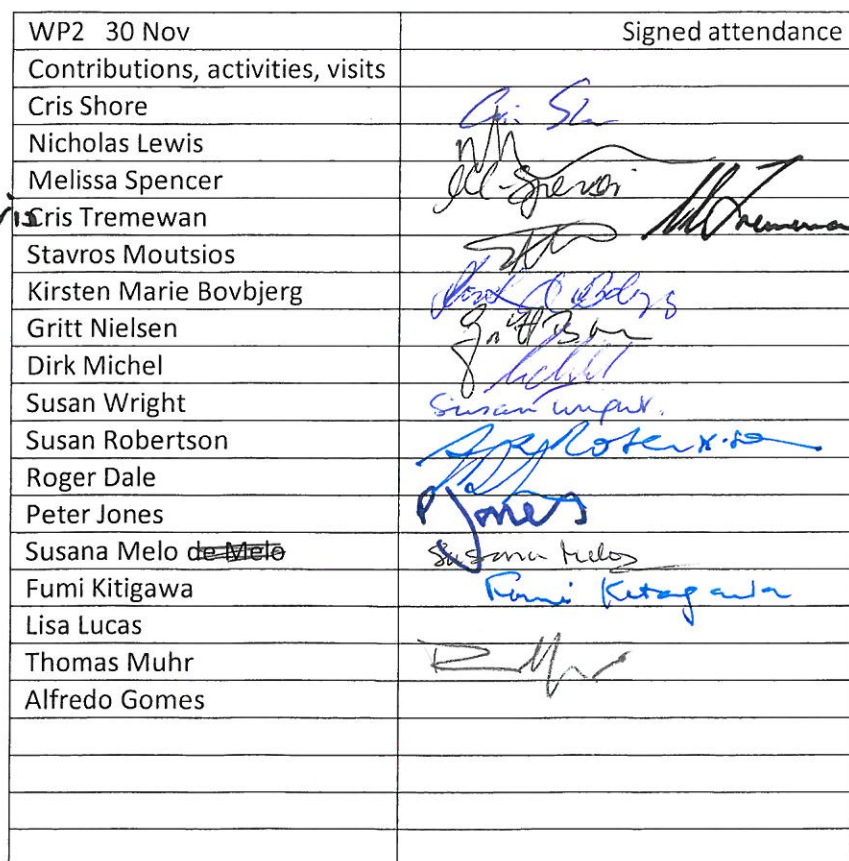 WP2 30 Nov Signed attendance
Contributions, activities, visits
Cris Shore
Nicholas Lewis
Melissa Spencer
Cris Tremewan
Stavros Moutsios
Kirsten Marie Bovbjerg
Gritt Nielsen
Dirk Michel
Susan Wright Susan Wright.
Susan Robertson
Roger Dale
Peter Jones P Jones
Susana Melo de Melo Susana Melo
Fumi Kitigawa Fumi Kitagawa
Lisa Lucas
Thomas Muhr
Alfredo Gomes